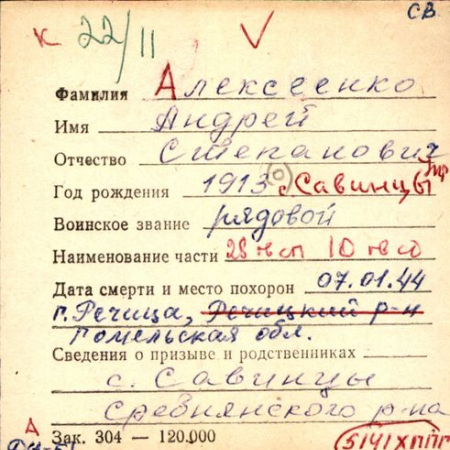 СВ
к 22/11
Фамилия Алексеенко
Имя Андрей
Отчество Степанович
Год рождения 1913 с. Савинцы
Воинское звание рядовой
Наименование части 28 10
Дата смерти и место похорон 07.01.44
г. Речица, Речицкий р-н
Гомельская обл.
Сведения о призыве и родственниках
с. Савинцы
Сребнянского р-на
А
Зак. 304 — 120.000
5141 ХППГ